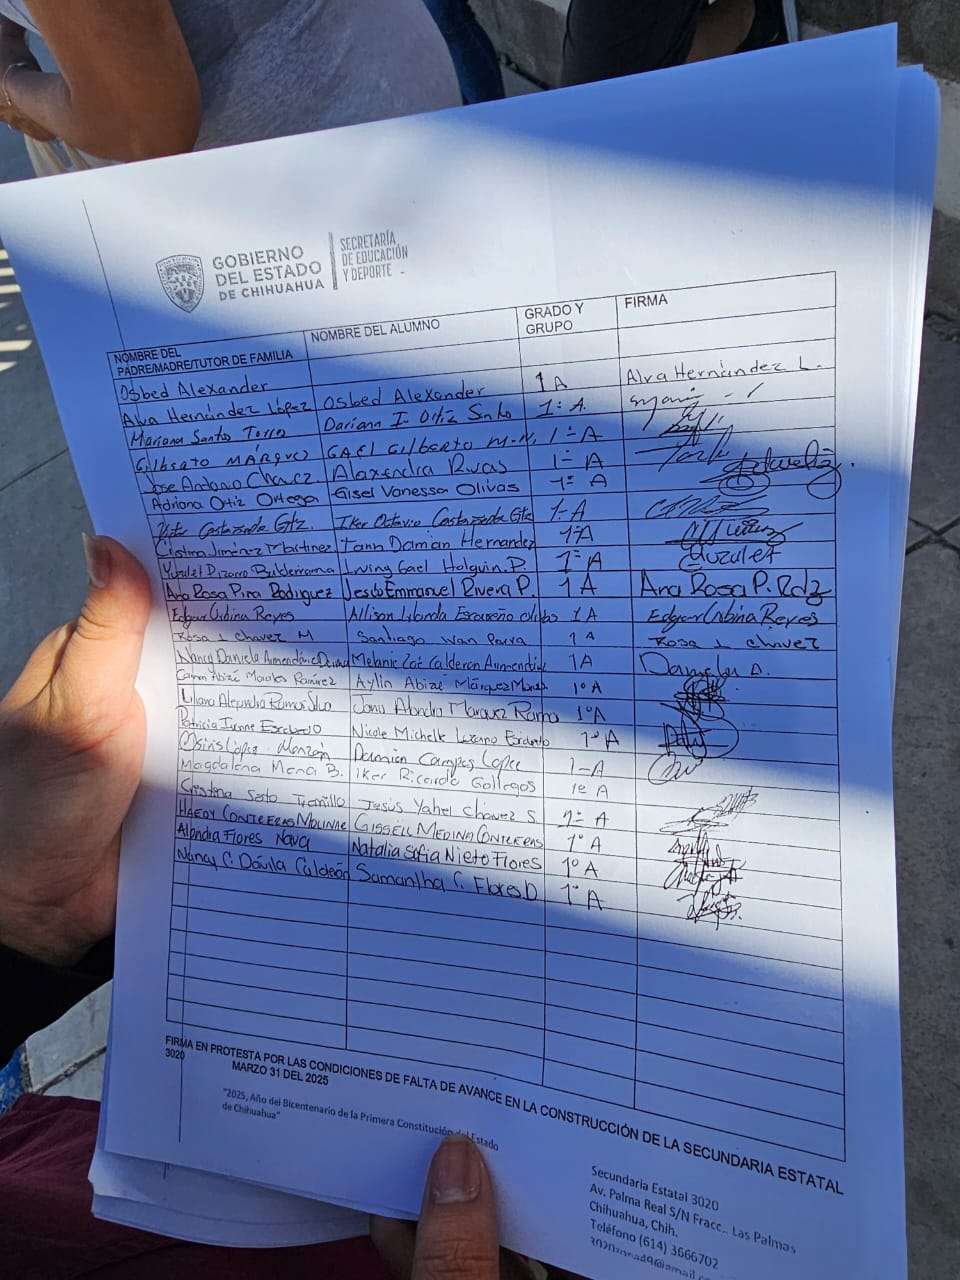 GOBIERNO
DEL ESTADO
DE CHIHUAHUA
SECRETARÍA
DE EDUCACIÓN
Y DEPORTE
NOMBRE DEL
PADRE/MADRE/TUTOR DE FAMILIA
NOMBRE DEL ALUMNO
GRADO Y
GRUPO
FIRMA
Osbed Alexander
Alva Hernández López Osbed Alexander 1 A Alva Hernández L.
Mariana Santos Torres Dariann I. Ortiz 1º A.
Gilberto MÁRQUEZ GAEL GILBERTO M. 1º A
Jose Antonio Chavez Alaxendra Rivas 1º A
Adriana Ortiz Ortega Gisel Vanessa Olivas 1º A
Castañeda Gtz. Iker Octavio Castañeda Gtz 1º A
Cristina Jiménez Martinez Iann Damian Hernandez 1º A
Pizarro Balderrama Irving Gael Holguin. P. 1º A
Ana Rosa Pina Rodriguez Jesús Emmanuel Rivera P. 1 A Ana Rosa P. Rdz
Edgar Urbina Reyes Allison 1 A Edgar Urbina Reyes
Rosa I Chavez M Santiago Ivan Parra 1º A Rosa I Chavez
Nancy Daniela Armendáriz Melanie Calderon Armendáriz 1 A Daniela A.
Abizé Morales Ramirez Aylin Abizé Márquez 1º A
Liliana Alejandra Ramos Marquez Ramos 1º A
Patricia Ivonne Escobedo Nicole Michelle Lozano 1º A
Osiris López Monzón Damián Campos Lopez 1º A
Magdalena Mena B. Iker Ricardo Gallegos 1º A
Cristina Soto Trujillo Jesús Yahel Chávez S. 1º A
HAEDY CONTRERAS MOLINAR GISSELL MEDINA CONTRERAS 1º A
Alondra Flores Nava Natalia Sofia Nieto Flores 1º A
Nancy C. Dávila Calderón Samantha C. Flores D. 1º A
FIRMA EN PROTESTA POR LAS CONDICIONES DE FALTA DE AVANCE EN LA CONSTRUCCIÓN DE LA SECUNDARIA ESTATAL
3020
MARZO 31 DEL 2025
"2025, Año del Bicentenario de la Primera Constitución del Estado
de Chihuahua"
Secundaria Estatal 3020
Av. Palma Real S/N Fracc.. Las Palmas
Chihuahua, Chih.
Teléfono (614) 3666702